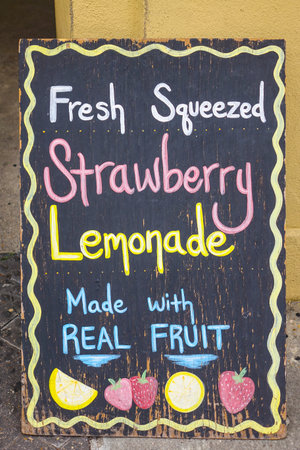 Fresh Squeezed
Strawberry
Lemonade
Made with
REAL FRUIT